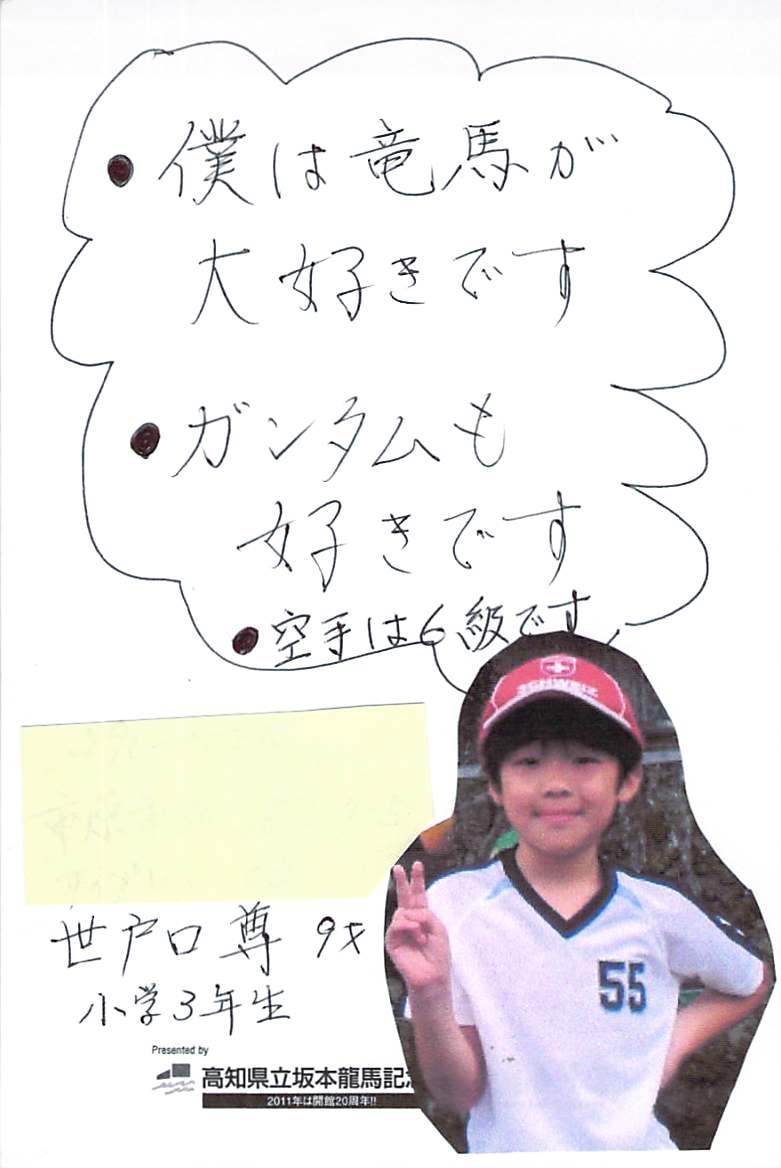 ・僕は竜馬が
大好きです
・ガンタムも
好きです
・空手は6級です
SCHWEIZ
55
世戸口尊 9才
小学3年生
Presented by
高知県立坂本龍馬記
2011年は開館20周年!!